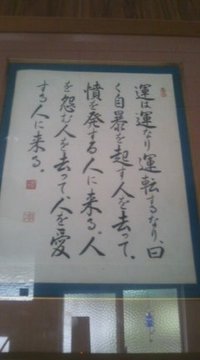 運は運なり運転するなり、曰
く自暴を起す人を去って、
憤を発する人に来る。人
を怨む人を去って人を愛
する人に来る。